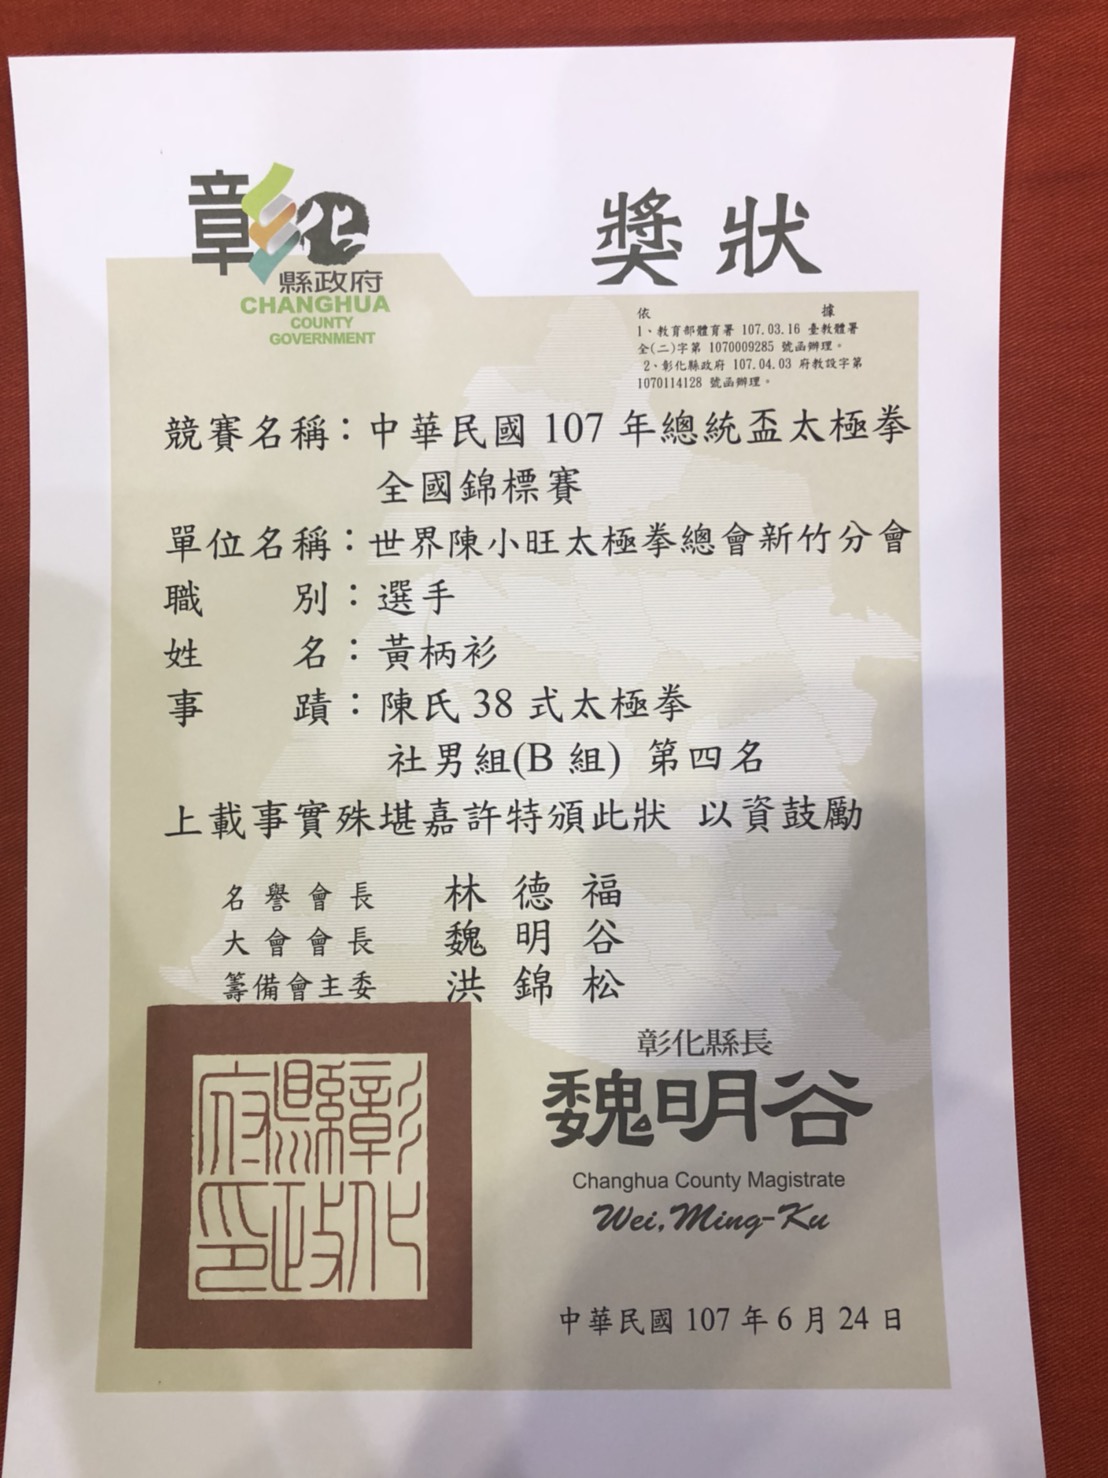 彰化
縣政府
CHANGHUA
COUNTY
GOVERNMENT
獎狀
依 據
1、教育部體育署 107.03.16 臺教體署
全(二)字第 1070009285 號函辦理。
2、彰化縣政府 107.04.03 府教設字第
1070114128 號函辦理。
競賽名稱：中華民國 107 年總統盃太極拳
全國錦標賽
單位名稱：世界陳小旺太極拳總會新竹分會
職 別：選手
姓 名：黃柄衫
事 蹟：陳氏 38 式太極拳
社男組(B 組) 第四名
上載事實殊堪嘉許特頒此狀 以資鼓勵
名譽會長 林德福
大會會長 魏明谷
籌備會主委 洪錦松
彰化縣政府印
彰化縣長
魏明谷
Changhua County Magistrate
Wei, Ming-Ku
中華民國 107 年 6 月 24 日